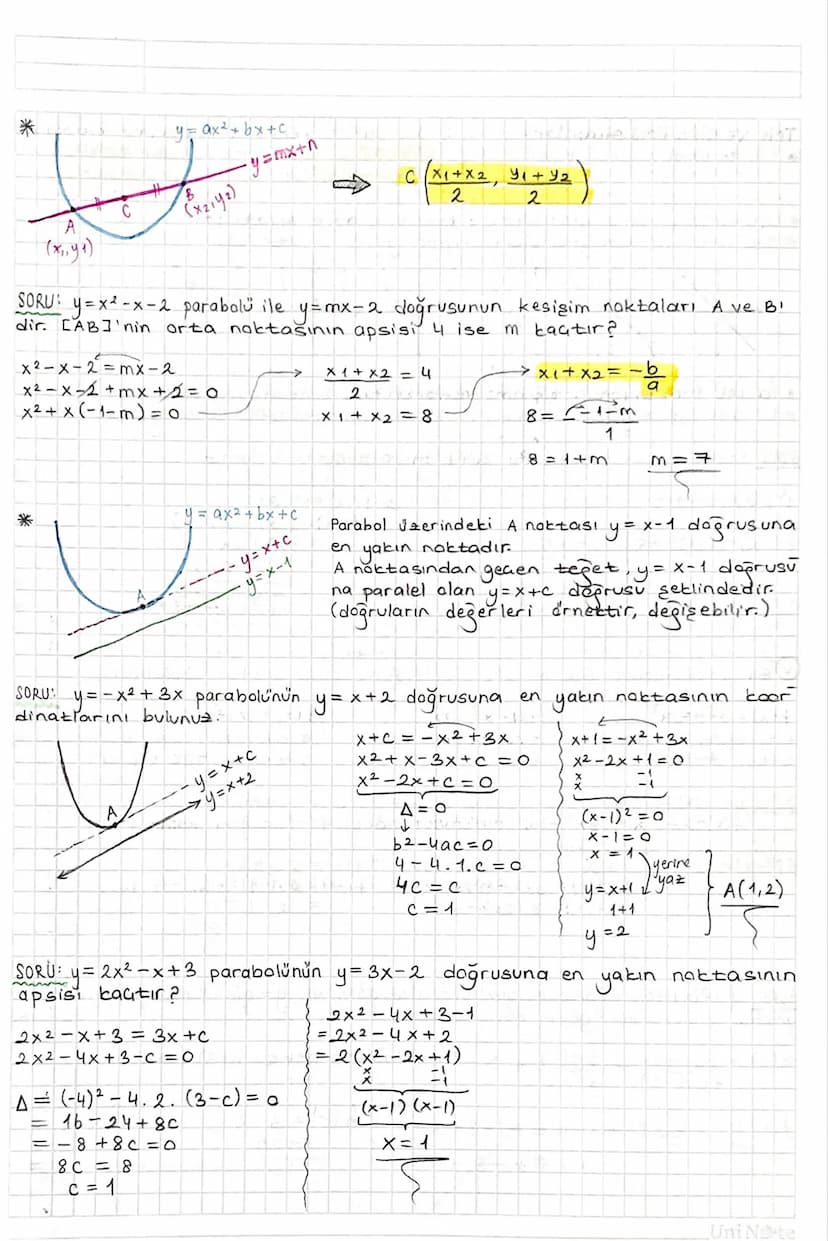 *
y = ax² + bx + c
y = mx + n
A
C
B
(x₁, y₁)
(x₂, y₂)
⇒ C (x₁ + x₂ / 2, y₁ + y₂ / 2)
SORU: y = x² - x - 2 parabolü ile y = mx - 2 doğrusunun kesişim noktaları A ve B'
dir. [AB]'nin orta noktasının apsisi 4 ise m kaçtır?
x² - x - 2 = mx - 2
x² - x - 2 + mx + 2 = 0
x² + x(-1-m) = 0
x₁ + x₂ / 2 = 4
x₁ + x₂ = 8
x₁ + x₂ = -b/a
8 = - -1-m / 1
8 = 1 + m m = 7
*
y = ax² + bx + c
y = x + c
y = x - 1
A
Parabol üzerindeki A noktası y = x - 1 doğrusuna
en yakın noktadır.
A noktasından geçen teğet, y = x - 1 doğrusu
na paralel olan y = x + c doğrusu şeklindedir.
(doğruların değerleri örnektir, değişebilir.)
SORU: y = -x² + 3x parabolünün y = x + 2 doğrusuna en yakın noktasının koor
dinatlarını bulunuz.
y = x + c
y = x + 2
A
x + c = -x² + 3x
x² + x - 3x + c = 0
x² - 2x + c = 0
Δ = 0
↓
b² - 4ac = 0
4 - 4.1.c = 0
4c = c
c = 1
x + 1 = -x² + 3x
x² - 2x + 1 = 0
x -1
x -1
(x-1)² = 0
x - 1 = 0
x = 1
yerine
yaz
y = x + 1
1 + 1
y = 2
A(1,2)
SORU: y = 2x² - x + 3 parabolünün y = 3x - 2 doğrusuna en yakın noktasının
apsisi kaçtır?
2x² - x + 3 = 3x + c
2x² - 4x + 3 - c = 0
Δ = (-4)² - 4.2.(3-c) = 0
= 16 - 24 + 8c
= -8 + 8c = 0
8c = 8
c = 1
2x² - 4x + 3 - 1
= 2x² - 4x + 2
= 2(x² - 2x + 1)
x -1
x -1
(x-1) (x-1)
x = 1
UniNote